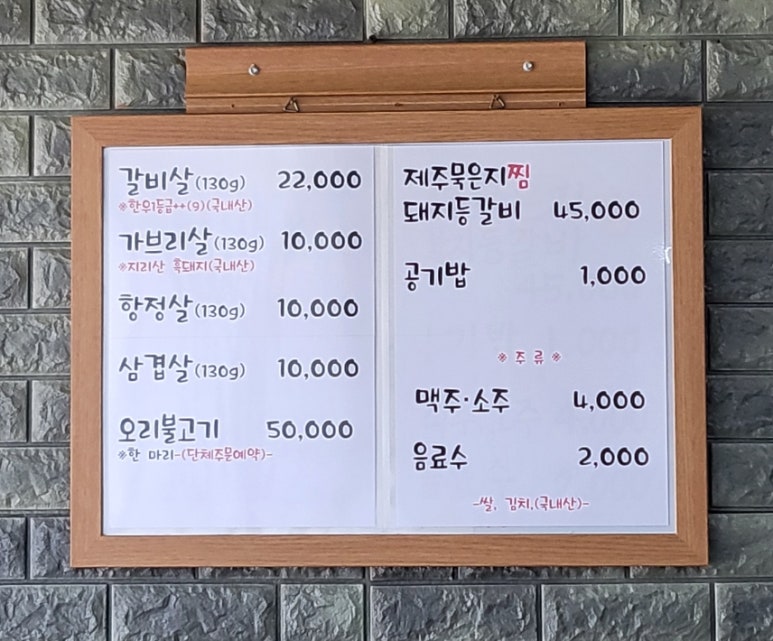 갈비살(130g) 22,000
※한우1등급++(9)(국내산)
가브리살(130g) 10,000
※지리산 흑돼지(국내산)
항정살(130g) 10,000
삼겹살(130g) 10,000
오리불고기 50,000
※한 마리-(단체주문예약)-
제주묵은지찜
돼지등갈비 45,000
공기밥 1,000
※ 주 류 ※
맥주·소주 4,000
음료수 2,000
-쌀, 김치,(국내산)-